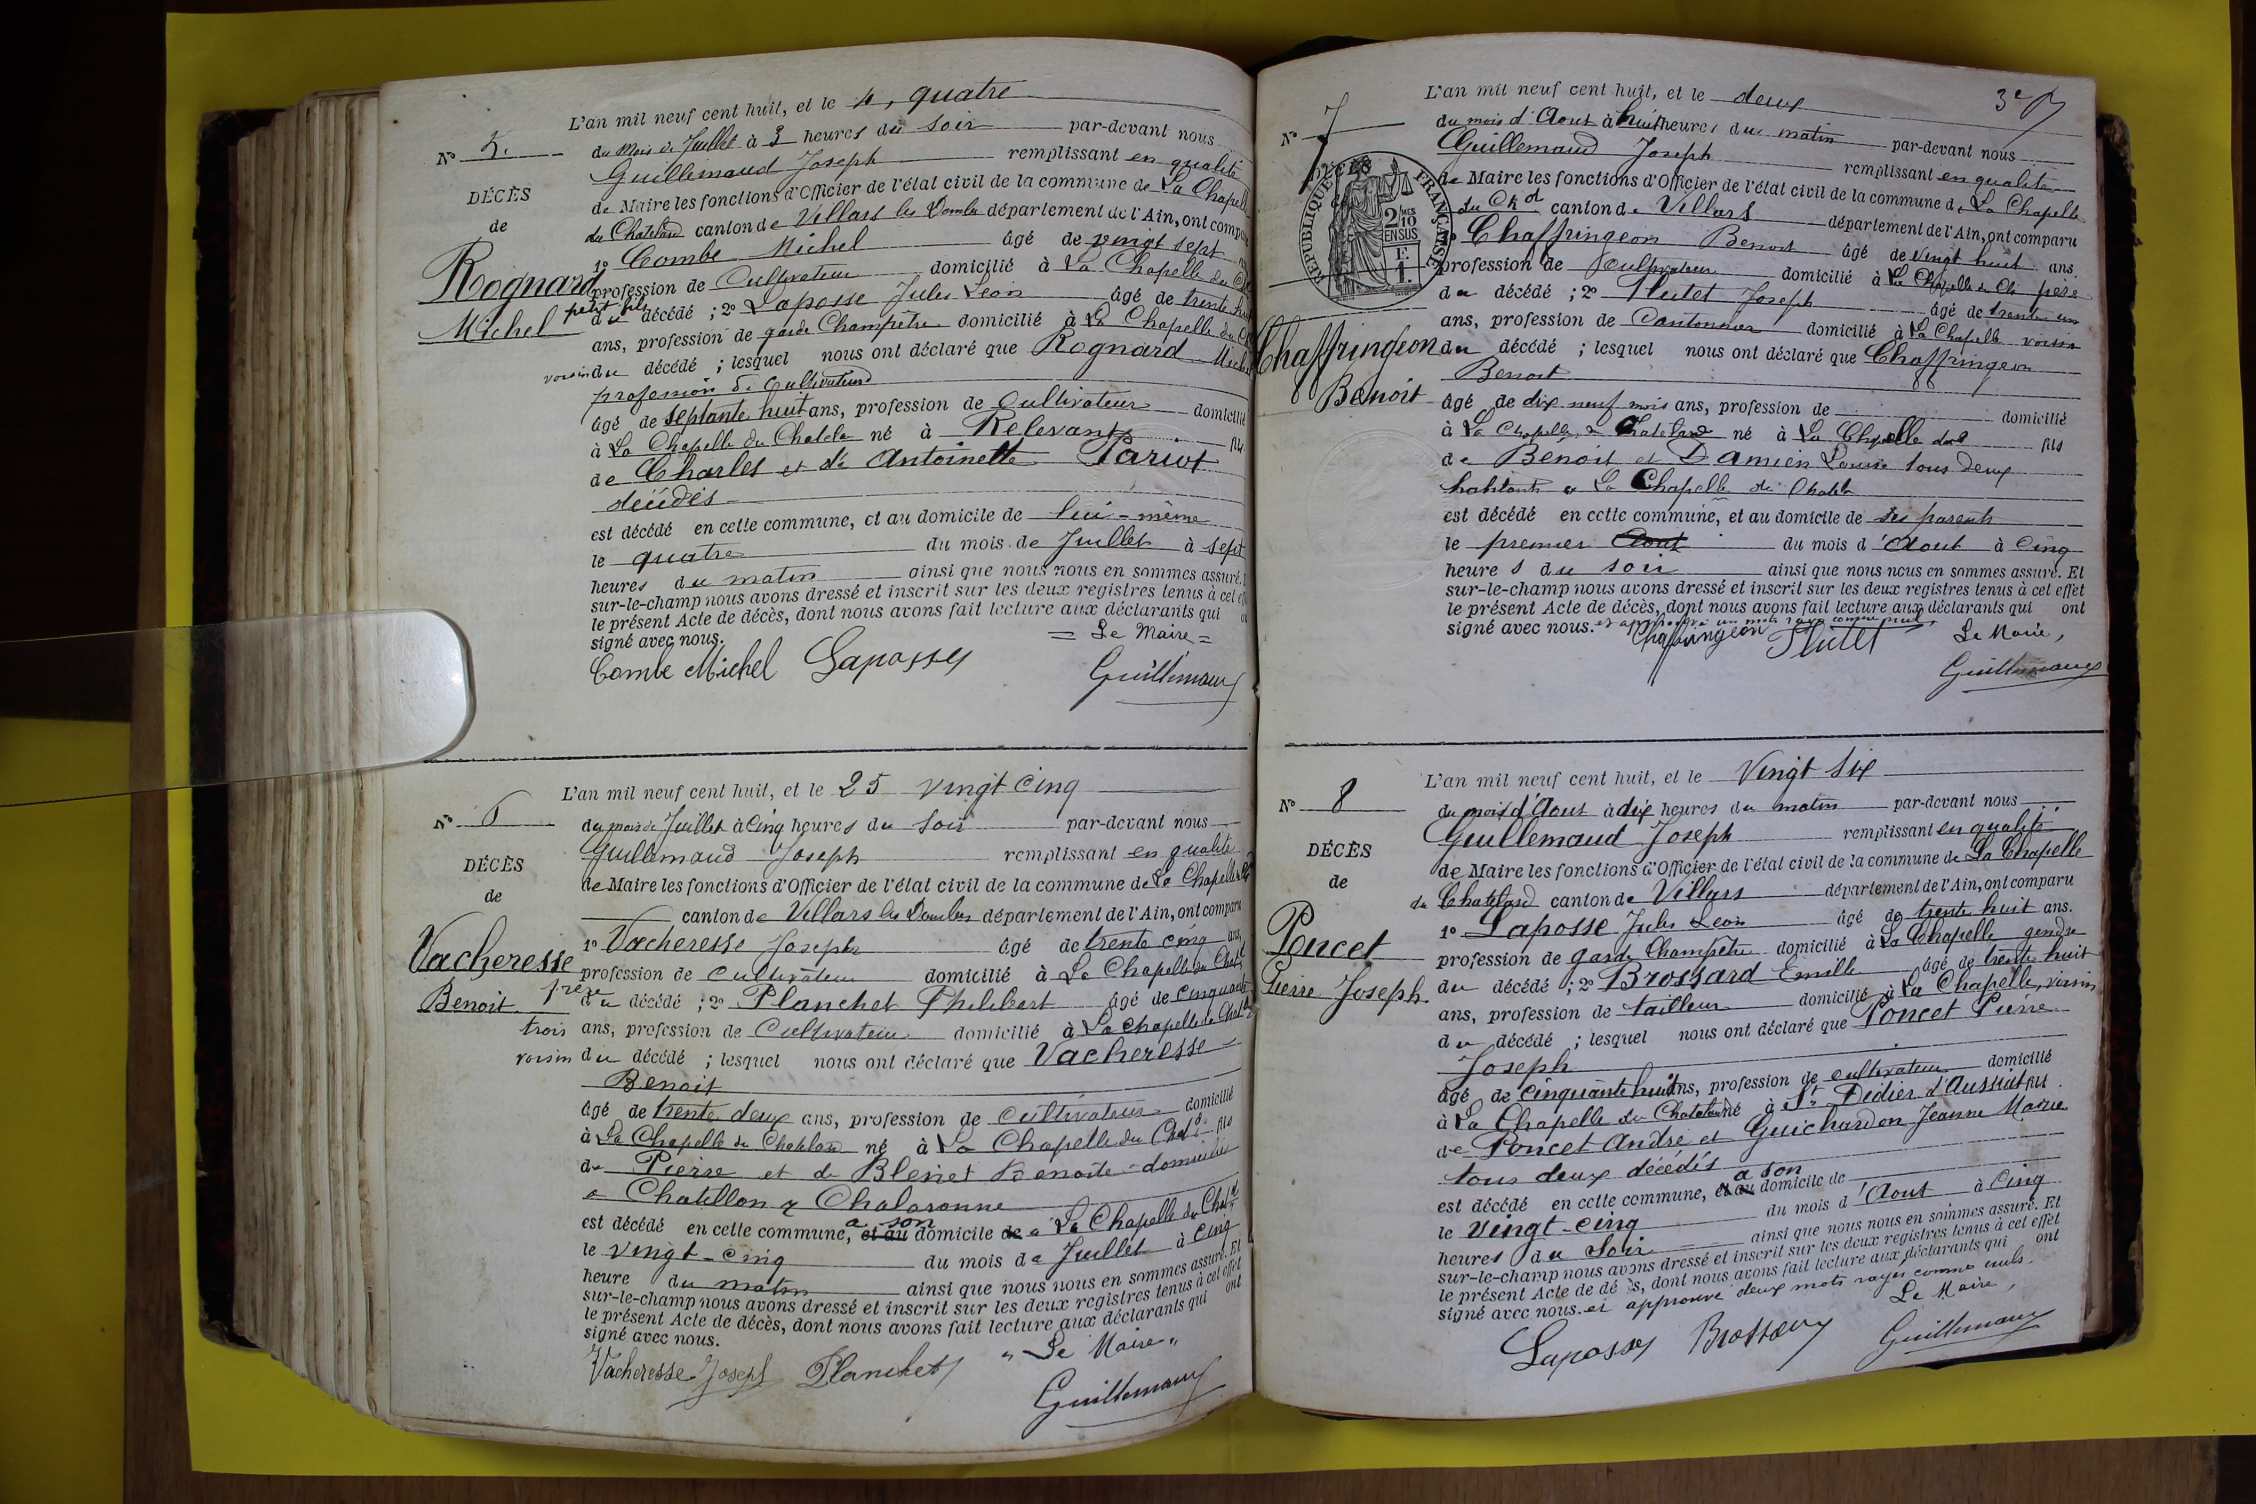 L'an mil neuf cent huit, et le 4, quatre
No 5.
du mois de Juillet à 3 heures du soir par-devant nous
Guillemaud Joseph remplissant en qualité
DÉCÈS
de Maire les fonctions d'Officier de l'état civil de la commune de La Chapelle
de
du Chatelard canton de Villars les Dombes département de l'Ain, ont comparu
1o Combe Michel âgé de vingt sept
Rognard
profession de Cultivateur domicilié à La Chapelle du
petit fils
Michel
du décédé ; 2o Laposse Jules Léon âgé de trente huit
ans, profession de garde Champêtre domicilié à La Chapelle du
voisin du décédé ; lesquel nous ont déclaré que Rognard Michel
profession de Cultivateur
âgé de septante huit ans, profession de Cultivateur domicilié
à La Chapelle du Chatela né à Relevant fils
de Charles et de Antoinette Pariot
décédés
est décédé en cette commune, et au domicile de lui-même
le quatre du mois de Juillet à sept
heures du matin ainsi que nous nous en sommes assuré.
sur-le-champ nous avons dressé et inscrit sur les deux registres tenus à cet
le présent Acte de décès, dont nous avons fait lecture aux déclarants qui
signé avec nous.
= Le Maire =
Combe Michel Laposse
Guillemaud
L'an mil neuf cent huit, et le 25 vingt cinq
No 6
du mois de Juillet à cinq heures du soir par-devant nous
Guillemaud Joseph remplissant en qualité
DÉCÈS
de Maire les fonctions d'Officier de l'état civil de la commune de La Chapelle
de
canton de Villars les Dombes département de l'Ain, ont comparu
Vacheresse
1o Vacheresse Joseph âgé de trente cinq ans,
profession de cultivateur domicilié à La Chapelle du Chatd
Benoit
frère
du décédé ; 2o Planchet Philibert âgé de cinquante
trois ans, profession de Cultivateur domicilié à La Chapelle du Chatd
voisin du décédé ; lesquel nous ont déclaré que Vacheresse
Benoit
âgé de trente deux ans, profession de cultivateur domicilié
à La Chapelle du Chatelard né à La Chapelle du Chatd fils
de Pierre et de Blenet Benoite domiciliés
a Chatillon s/ Chalaronne
a son
est décédé en cette commune, et au domicile de a La Chapelle du Chatd
le vingt-cinq du mois de Juillet à cinq
heure du matin ainsi que nous nous en sommes assuré. Et
sur-le-champ nous avons dressé et inscrit sur les deux registres tenus à cet effet
le présent Acte de décès, dont nous avons fait lecture aux déclarants qui ont
signé avec nous.
" Le Maire "
Vacheresse Joseph Planchet
Guillemaud
3e
L'an mil neuf cent huit, et le deux
No 7
du mois d'Aout à huit heures du matin par-devant nous
Guillemaud Joseph remplissant en qualité
DÉCÈS
RÉPUBLIQUE FRANÇAISE
2/10 EN SUS
1 F.
de Maire les fonctions d'Officier de l'état civil de la commune de La Chapelle
du Chd canton de Villars département de l'Ain, ont comparu
1o Chaffringeon Benoit âgé de vingt huit ans.
profession de cultivateur domicilié à La Chapelle du Ch père
du décédé ; 2o Flutet Joseph âgé de trente un
ans, profession de Cantonnier domicilié à La Chapelle voisin
Chaffringeon
du décédé ; lesquel nous ont déclaré que Chaffringeon
Benoit
Benoit
âgé de dix neuf mois ans, profession de domicilié
à La Chapelle du Chatelard né à La Chapelle dud fils
de Benoit et Damien Louise tous deux
habitants a La Chapelle du Chatel
est décédé en cette commune, et au domicile de ses parents
le premier Aout du mois d'Aout à cinq
heures du soir ainsi que nous nous en sommes assuré. Et
sur-le-champ nous avons dressé et inscrit sur les deux registres tenus à cet effet
le présent Acte de décès, dont nous avons fait lecture aux déclarants qui ont
signé avec nous. et approuvé un mot rayé comme nul.
Chaffringeon Flutet Le Maire,
Guillemaud
L'an mil neuf cent huit, et le Vingt six
No 8
du mois d'Aout à dix heures du matin par-devant nous
Guillemaud Joseph remplissant en qualité
DÉCÈS
de Maire les fonctions d'Officier de l'état civil de la commune de La Chapelle
de
du Chatelard canton de Villars département de l'Ain, ont comparu
Poncet
1o Laposse Jules Léon âgé de trente huit ans.
profession de garde Champêtre domicilié à La Chapelle gendre
Pierre Joseph.
du décédé ; 2o Brossard Emille âgé de trente huit
ans, profession de tailleur domicilié à La Chapelle, voisin
du décédé ; lesquel nous ont déclaré que Poncet Pierre
Joseph
âgé de cinquante huit ans, profession de cultivateur domicilié
à La Chapelle du Chatelard né à St Didier d'Aussiat fils
de Poncet André et Guichardon Jeanne Marie
tous deux décédés
a son
est décédé en cette commune, et au domicile de
le Vingt-cinq du mois d'Aout à cinq
heures du soir ainsi que nous nous en sommes assuré. Et
sur-le-champ nous avons dressé et inscrit sur les deux registres tenus à cet effet
le présent Acte de décès, dont nous avons fait lecture aux déclarants qui ont
signé avec nous. et approuvé deux mots rayés comme nuls.
Le Maire,
Laposse Brossard Guillemaud